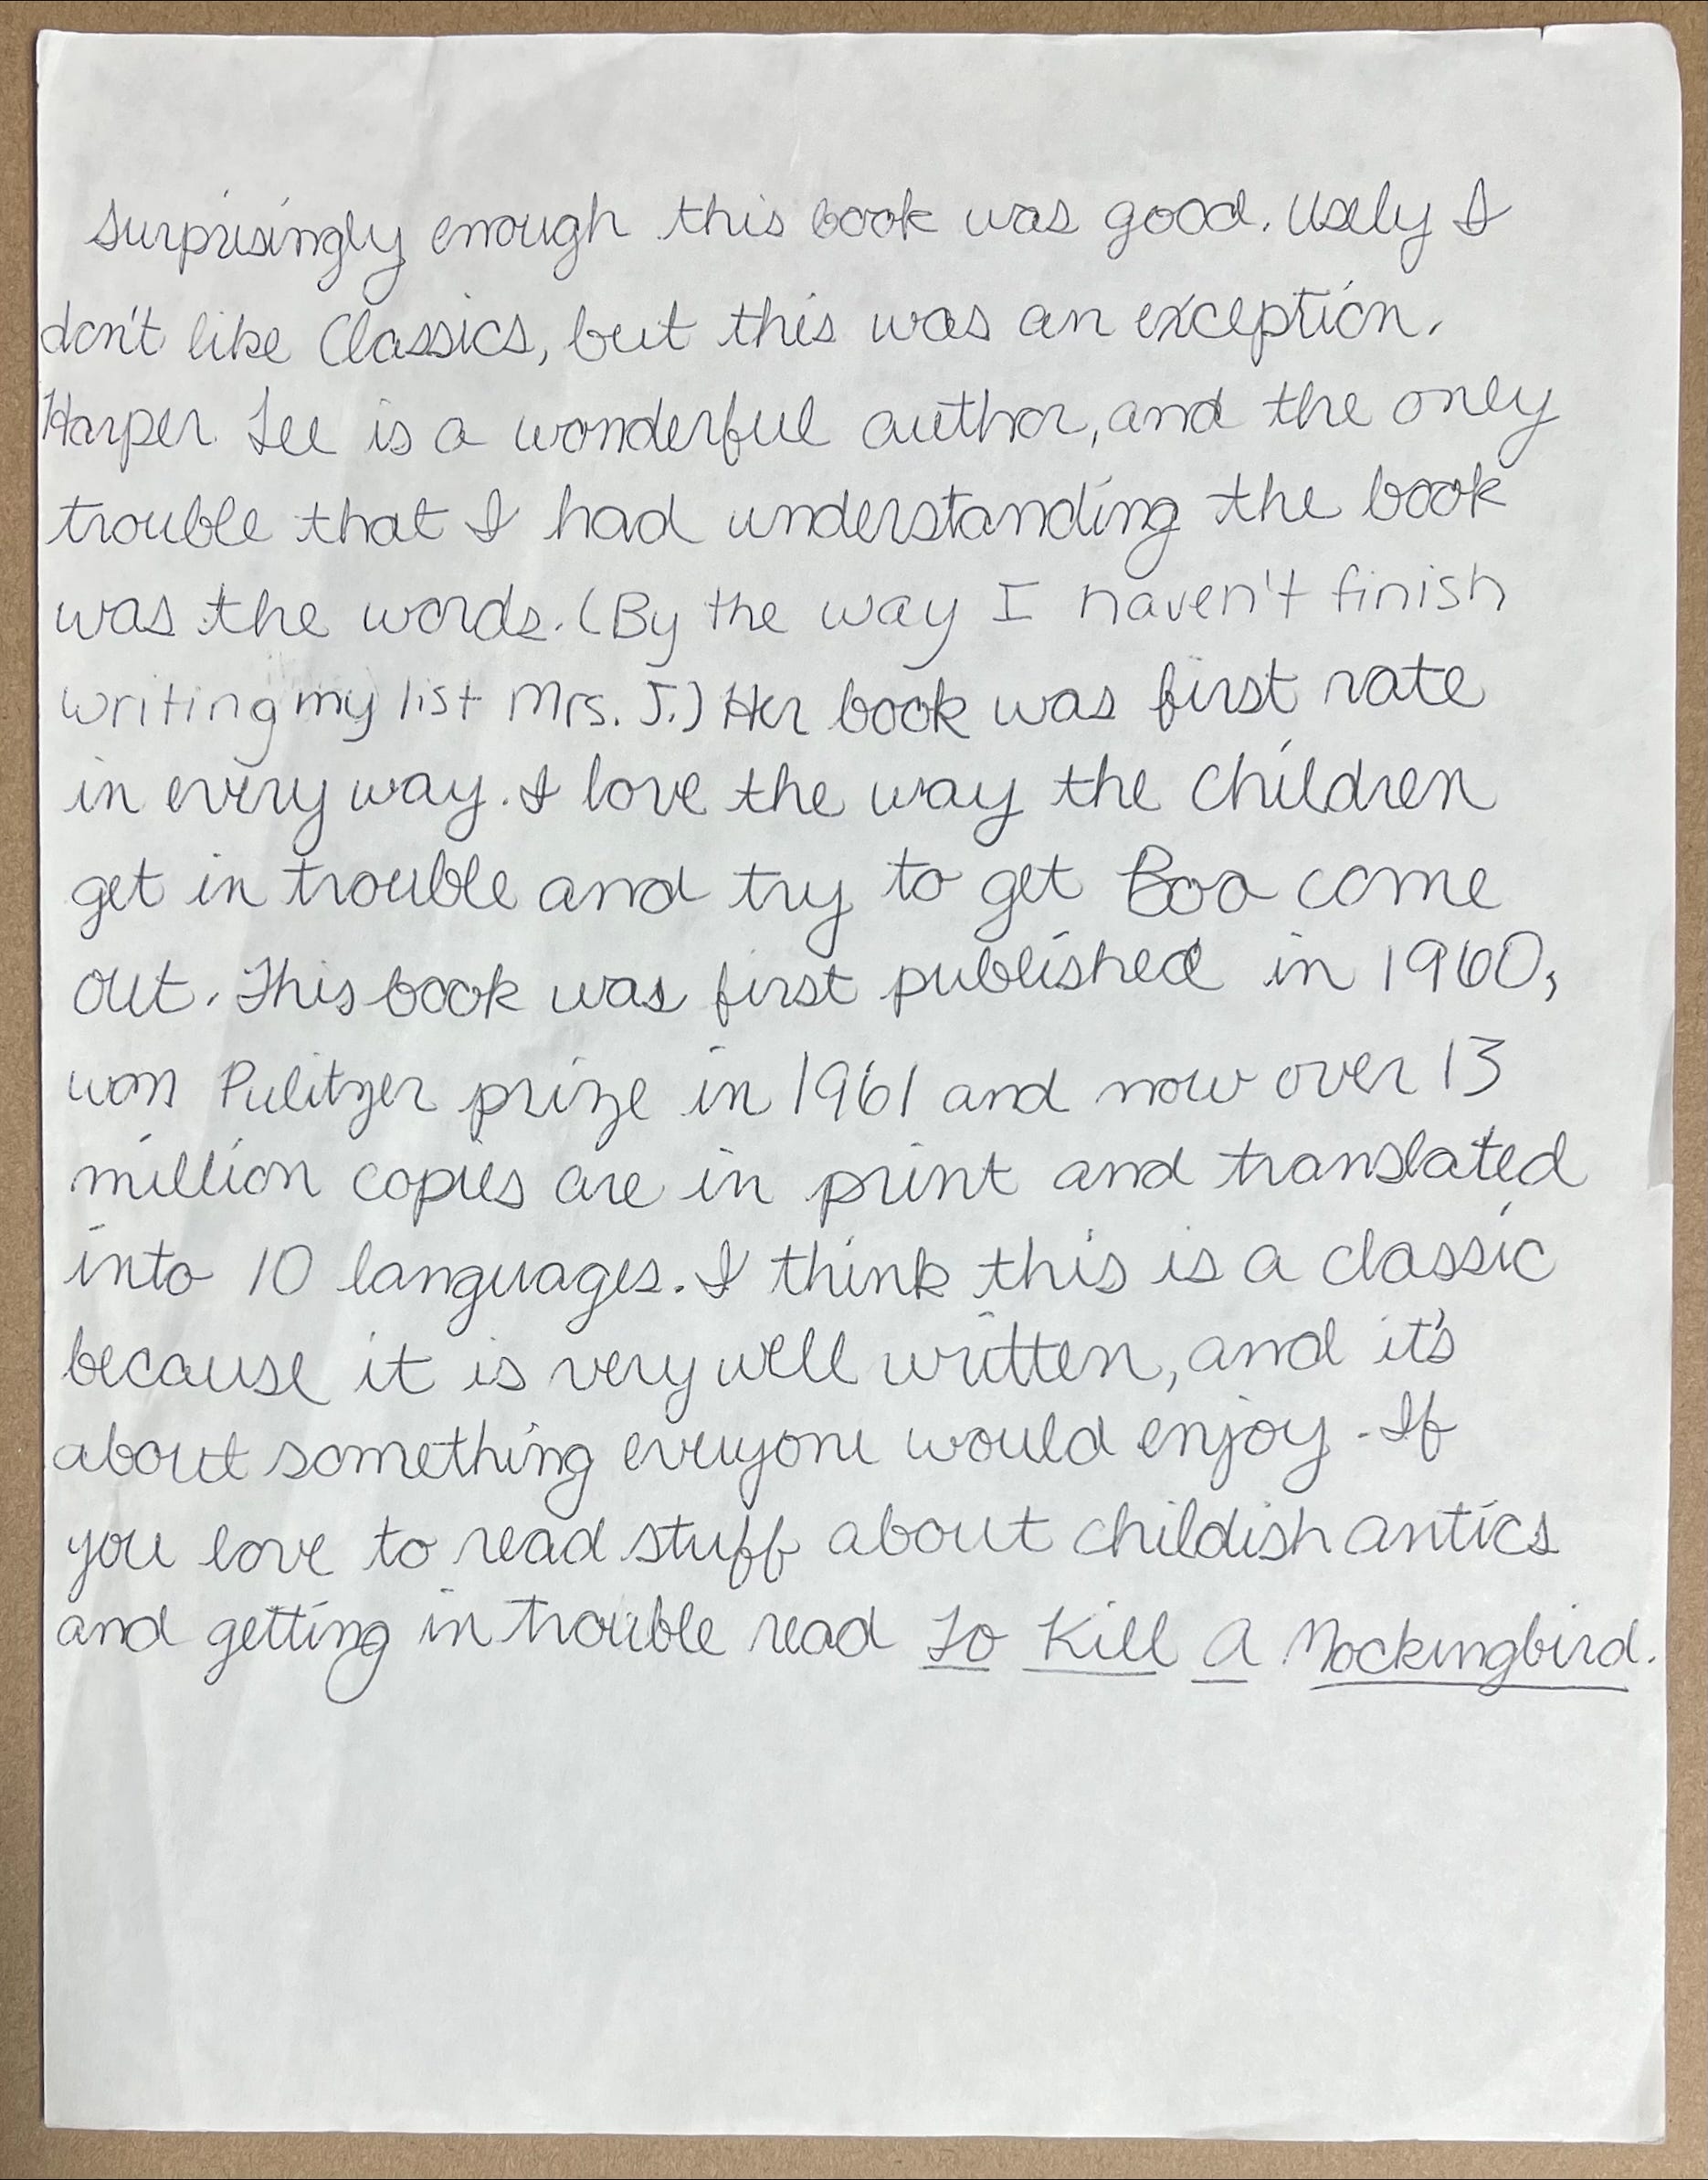 Surprisingly enough this book was good. Usely I
don't like Classics, but this was an exception.
Harper Lee is a wonderful author, and the only
trouble that I had understanding the book
was the words. (By the way I haven't finish
writing my list Mrs. J.) Her book was first rate
in every way. I love the way the children
get in trouble and try to get Boo come
out. This book was first published in 1960,
won Pulitzer prize in 1961 and now over 13
million copies are in print and translated
into 10 languages. I think this is a classic
because it is very well written, and it's
about something everyone would enjoy. If
you love to read stuff about childish antics
and getting in trouble read To Kill A Mockingbird.